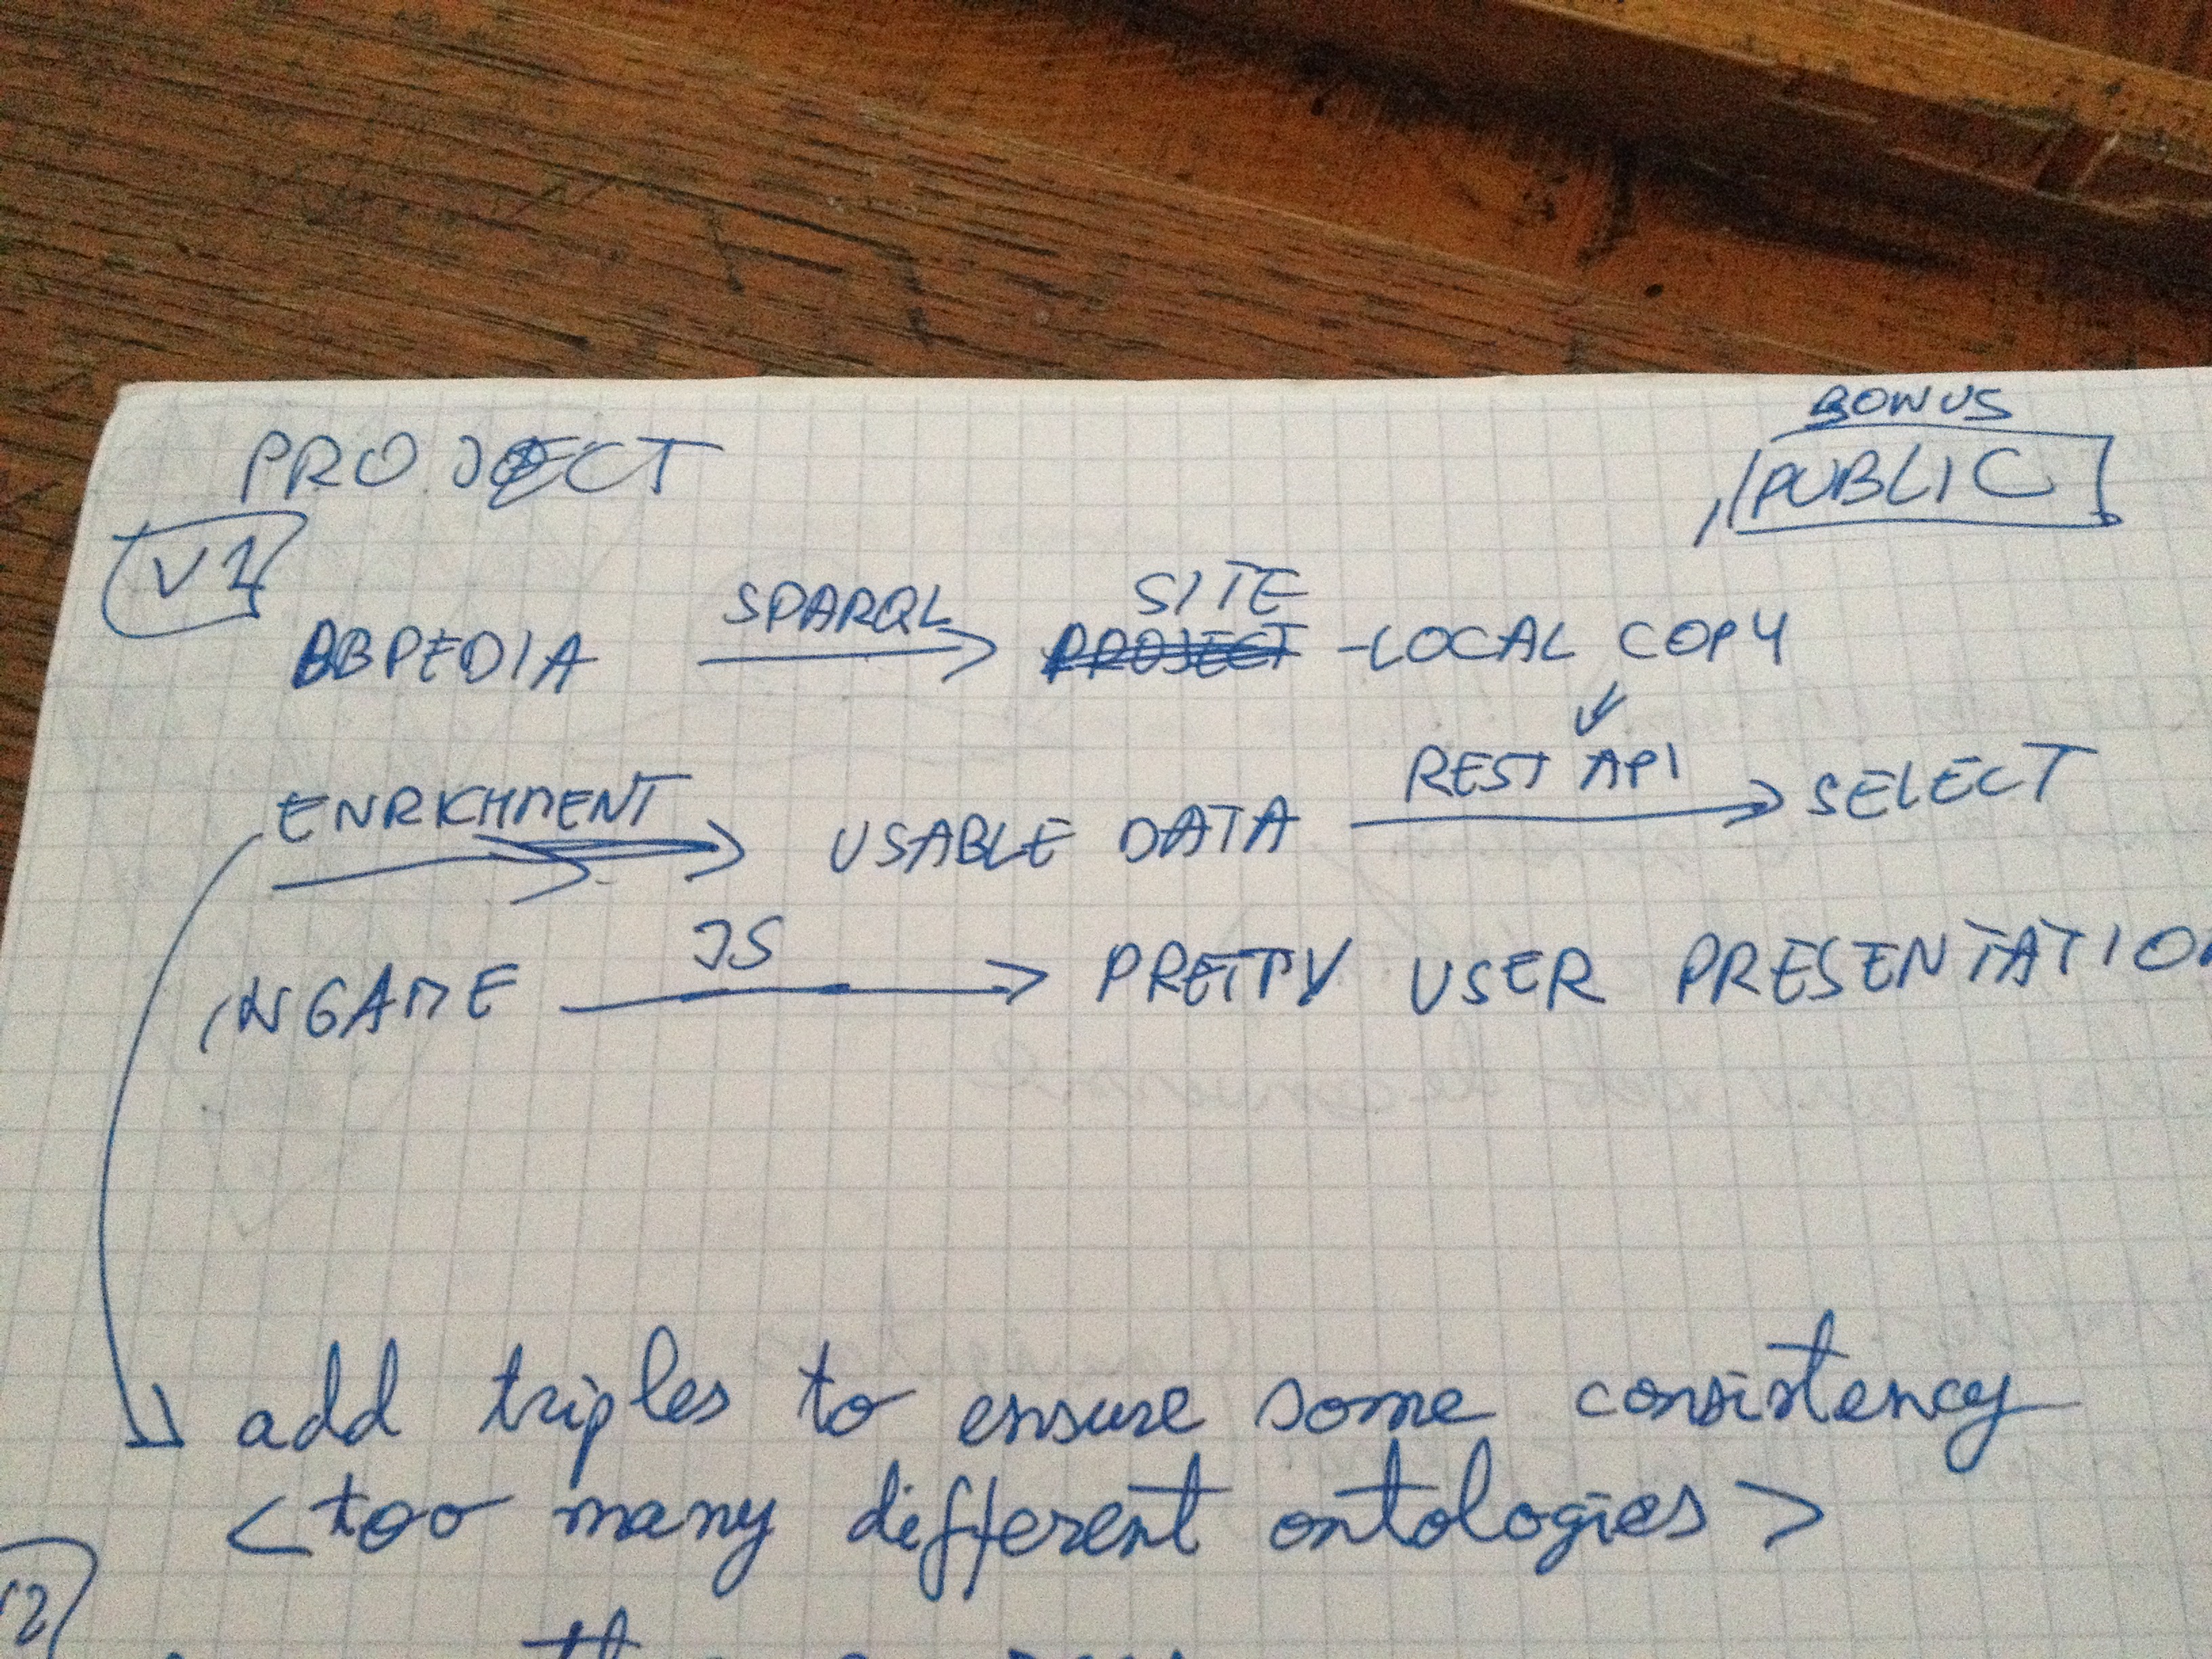 BONUS
PROJECT PUBLIC
V1
SPARQL SITE
DBPEDIA - LOCAL COPY
REST API
ENRICHMENT USABLE DATA SELECT
JS
INGAME PRETTY USER PRESENTATION
add triples to ensure some consistency
<too many different ontologies>